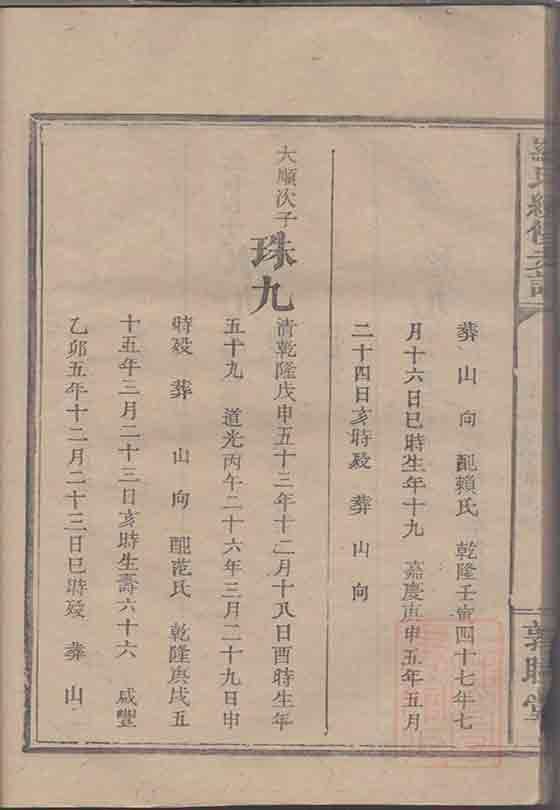 葬 山 向 配賴氏 乾隆壬寅四十七年七
月十六日巳時生年十九 嘉慶庚申五年五月
二十四日亥時殁 葬 山 向
大順次子
珠九
清乾隆戊申五十三年十二月十八日酉時生年
五十九 道光丙午二十六年三月二十九日申
時殁 葬 山 向 配范氏 乾隆庚戌五
十五年三月二十三日亥時生壽六十六 咸豐
乙卯五年十二月二十三日巳時殁 葬 山